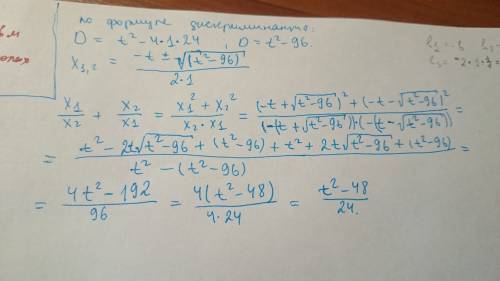 по формуле дискриминанта:
D = t² - 4·1·24 ; D = t² - 96.
x₁,₂ = (-t ± √(t²-96)) / (2·1)
x₁/x₂ + x₂/x₁ = (x₁² + x₂²) / (x₂·x₁) = ((-t+√(t²-96))² + (-t-√(t²-96))²) / ((-t+√(t²-96))·(-t-√(t²-96))) =
= (t² - 2t√(t²-96) + (t²-96) + t² + 2t√(t²-96) + (t²-96)) / (t² - (t²-96)) =
= (4t² - 192) / 96 = 4(t²-48) / (4·24) = (t²-48) / 24.